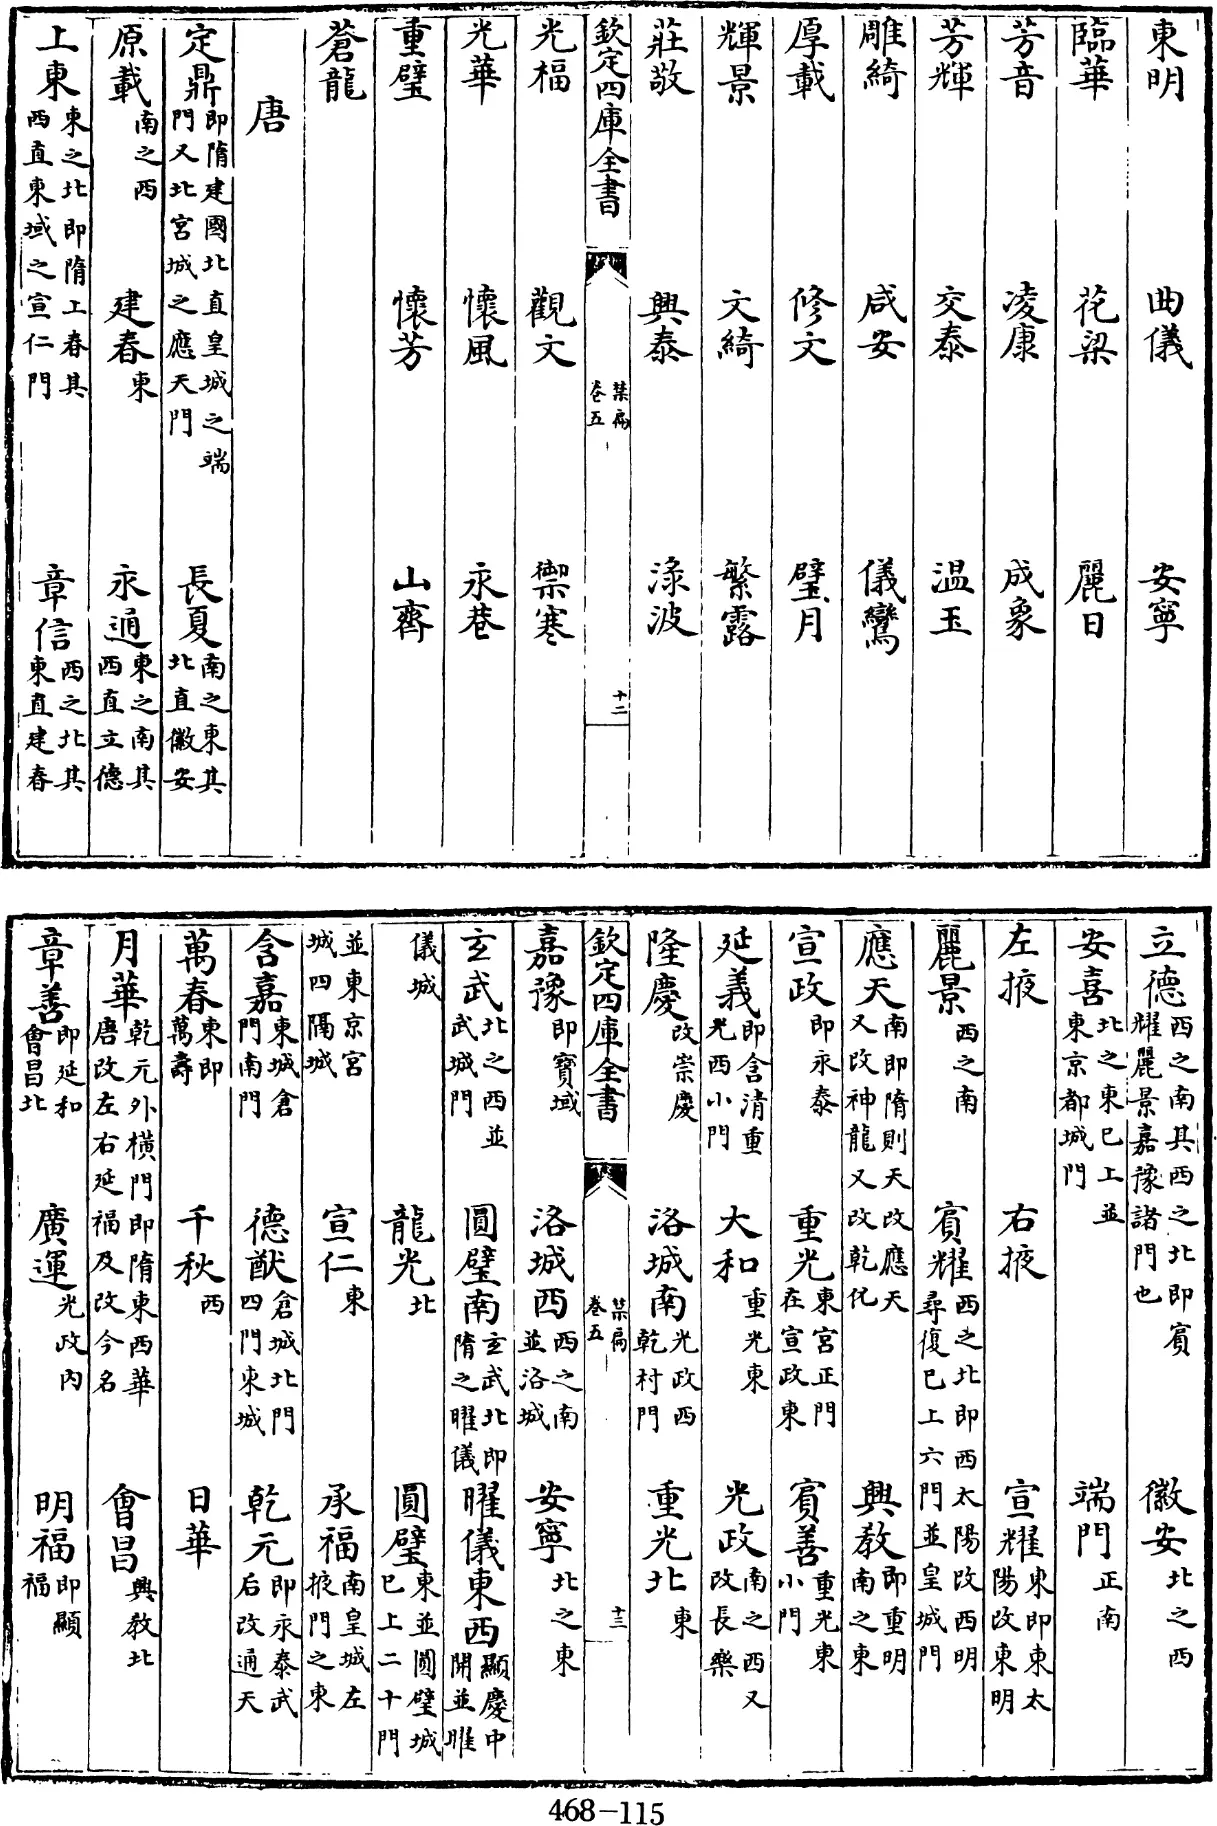 東明　曲儀　安寧
臨華　花梁　麗日
芳音　凌康　成象
芳輝　交泰　温玉
雕綺　咸安　儀鸞
厚載　修文　璧月
輝景　文綺　繁露
莊敬　興泰　淥波
欽定四庫全書　禁扁卷五　十二
光福　觀文　禦寒
光華　懷風　永巷
重璧　懷芳　山齋
蒼龍
唐
定鼎即隋建國北直皇城之端門又北宮城之應天門　長夏南之東其北直徽安
原載南之西　建春東　永通東之南其西直立德
上東東之北即隋上春其西直東域之宣仁門　章信西之北其東直建春
立德西之南其西之北即賓耀麗景嘉豫諸門也　徽安北之西
安喜北之東巳上並東京都城門　端門正南
左掖　右掖　宣耀東即東太陽改東明
麗景西之南　賓耀西之北即西太陽改西明尋復巳上六門並皇城門
應天南即隋則天改應天又改神龍又改乾化　興教即重明南之東
宣政即永泰　重光東宮正門在宣政東　賓善重光東小門
延義即含清重光西小門　大和重光東　光政南之西又改長樂
隆慶改崇慶　洛城南光政西乾村門　重光北東
欽定四庫全書　禁扁卷五　十三
嘉豫即寶城　洛城西西之南並洛城　安寧北之東
玄武北之西並武城門　圓璧南玄武北即隋之曜儀　曜儀東西顯慶中開並曜
儀城　龍光北　圓璧東並圓璧城巳上二十門
並東京宮城四隔城　宣仁東　承福南皇城左掖門之東
含嘉東城倉門南門　德猷倉城北門四門東城　乾元即永泰武后改通天
萬春東即萬壽　千秋西　日華
月華乾元外橫門即隋東西華唐改左右延福及改今名　會昌興教北
章善即延和會昌北　廣運光政內　明福即顯福
468-115